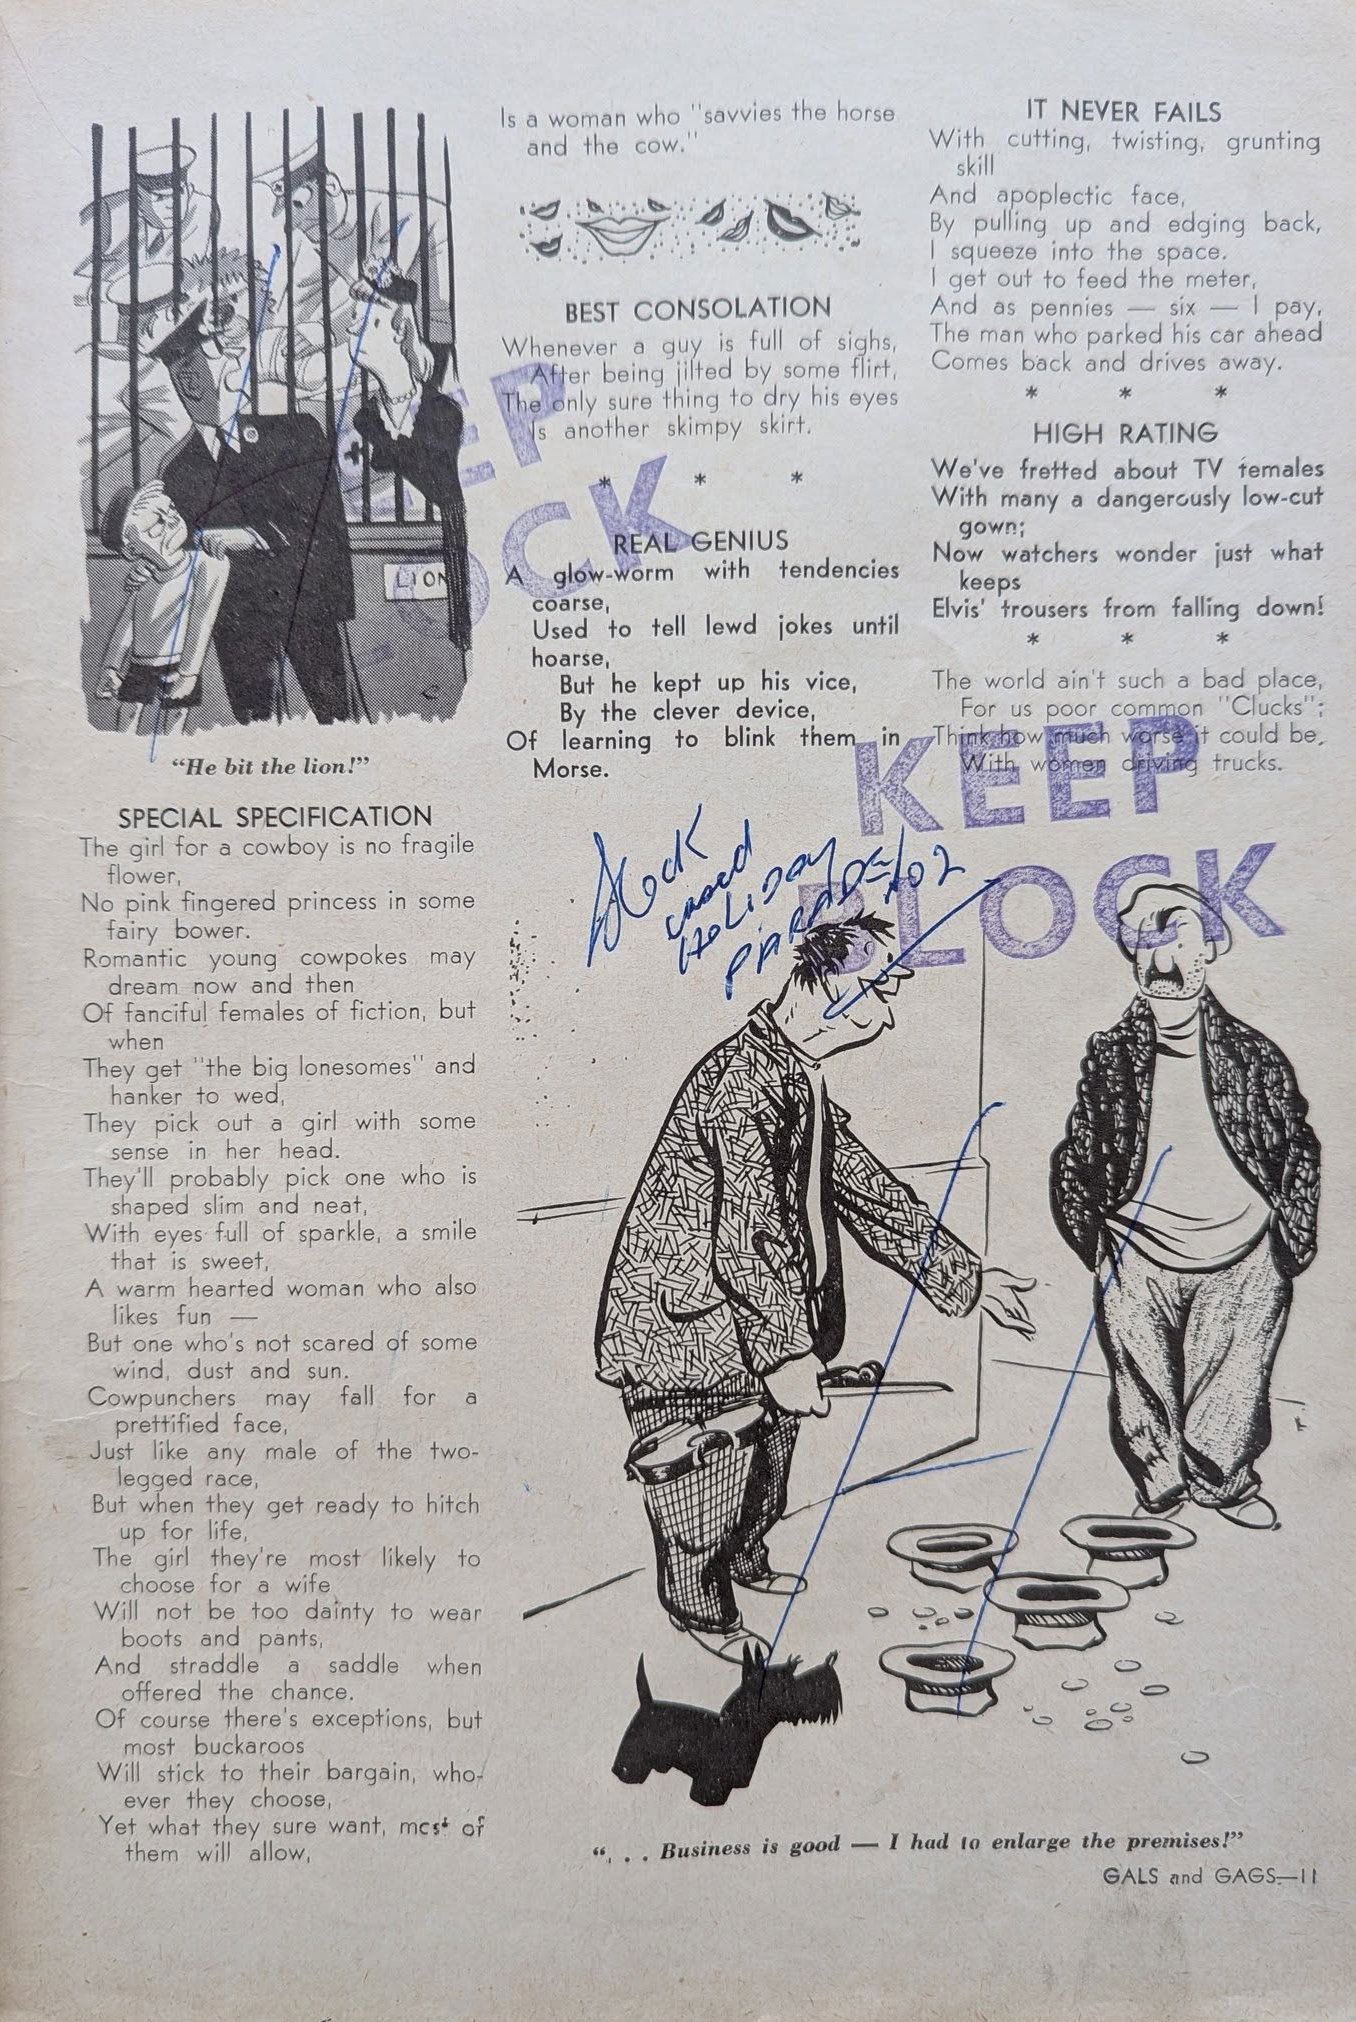 LION
"He bit the lion!"
SPECIAL SPECIFICATION
The girl for a cowboy is no fragile
flower,
No pink fingered princess in some
fairy bower.
Romantic young cowpokes may
dream now and then
Of fanciful females of fiction, but
when
They get "the big lonesomes" and
hanker to wed,
They pick out a girl with some
sense in her head.
They'll probably pick one who is
shaped slim and neat,
With eyes full of sparkle, a smile
that is sweet,
A warm hearted woman who also
likes fun —
But one who's not scared of some
wind, dust and sun.
Cowpunchers may fall for a
prettified face,
Just like any male of the two-
legged race,
But when they get ready to hitch
up for life,
The girl they're most likely to
choose for a wife
Will not be too dainty to wear
boots and pants,
And straddle a saddle when
offered the chance.
Of course there's exceptions, but
most buckaroos
Will stick to their bargain, who-
ever they choose,
Yet what they sure want, most of
them will allow,
Is a woman who "savvies the horse
and the cow."
BEST CONSOLATION
Whenever a guy is full of sighs,
After being jilted by some flirt,
The only sure thing to dry his eyes
Is another skimpy skirt.
* * *
REAL GENIUS
A glow-worm with tendencies
coarse,
Used to tell lewd jokes until
hoarse,
But he kept up his vice,
By the clever device,
Of learning to blink them in
Morse.
IT NEVER FAILS
With cutting, twisting, grunting
skill
And apoplectic face,
By pulling up and edging back,
I squeeze into the space.
I get out to feed the meter,
And as pennies — six — I pay,
The man who parked his car ahead
Comes back and drives away.
* * *
HIGH RATING
We've fretted about TV females
With many a dangerously low-cut
gown;
Now watchers wonder just what
keeps
Elvis' trousers from falling down!
* * *
The world ain't such a bad place,
For us poor common "Clucks";
Think how much worse it could be,
With women driving trucks.
EEP
OCK
KEEP
BLOCK
used
HOLIDAY
PARADE/102
". . . Business is good — I had to enlarge the premises!"
GALS and GAGS—11